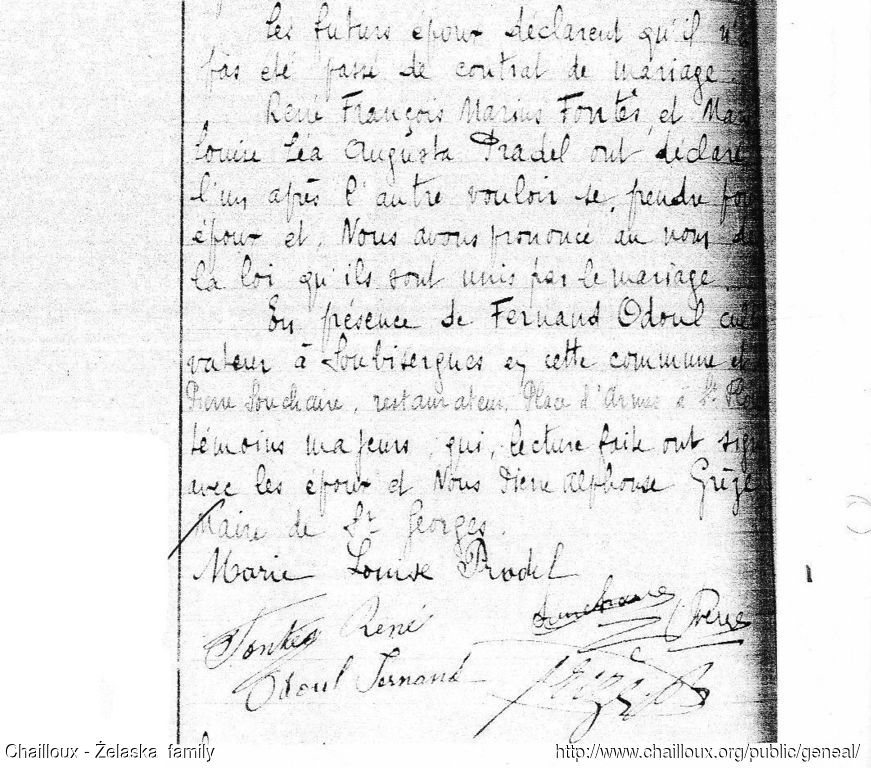 Les futurs époux déclarent qu'il n'a
pas été passé de contrat de mariage.
René François Marius Fontès, et Mar
Louise Léa Augusta Pradel ont déclaré
l'un après l'autre vouloir se prendre pou
époux et, Nous avons prononcé au nom de
la loi qu'ils sont unis par le mariage.
En présence de Fernand Odoul cul
vateur à Soubisergues en cette commune et
Pierre Souchaire, restaurateur, Place d'Armes à St Flou
témoins majeurs, qui, lecture faite ont sign
avec les époux et Nous Pierre Alphonse Grèze
Maire de St Georges.
Marie Louise Pradel
Fontès René
Odoul Fernand
Chailloux - Żelaska family
http://www.chailloux.org/public/geneal/